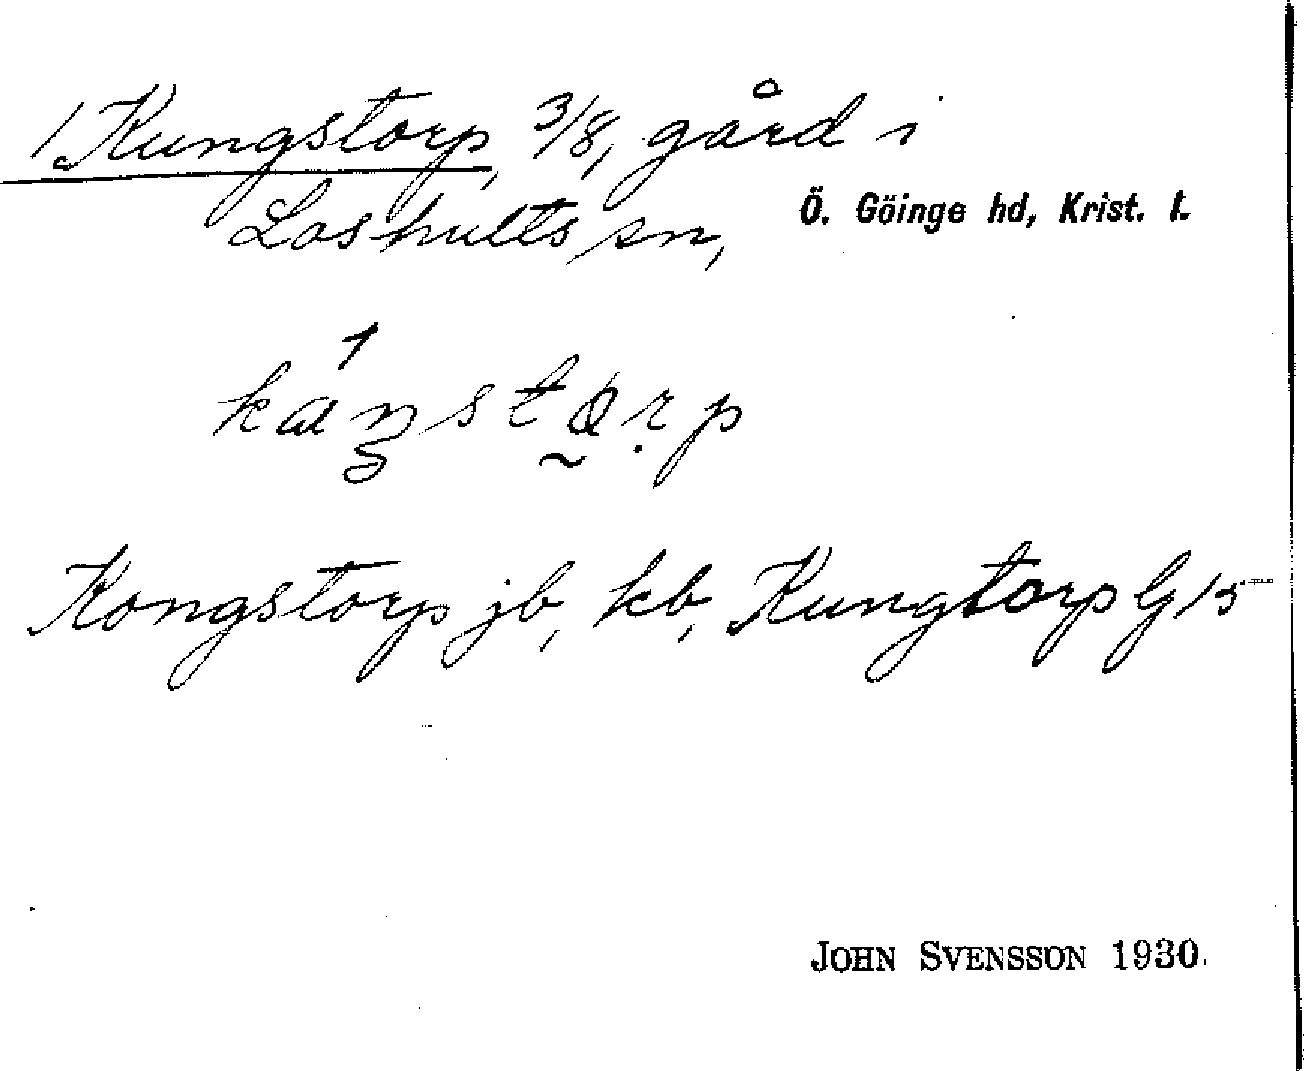 1 Kungstorp, 3/8, gård i
Loshults sn, Ö. Göinge hd, Krist. l.
Kongstorp jb, kb, Kungtorp G 15
JOHN SVENSSON 1930.